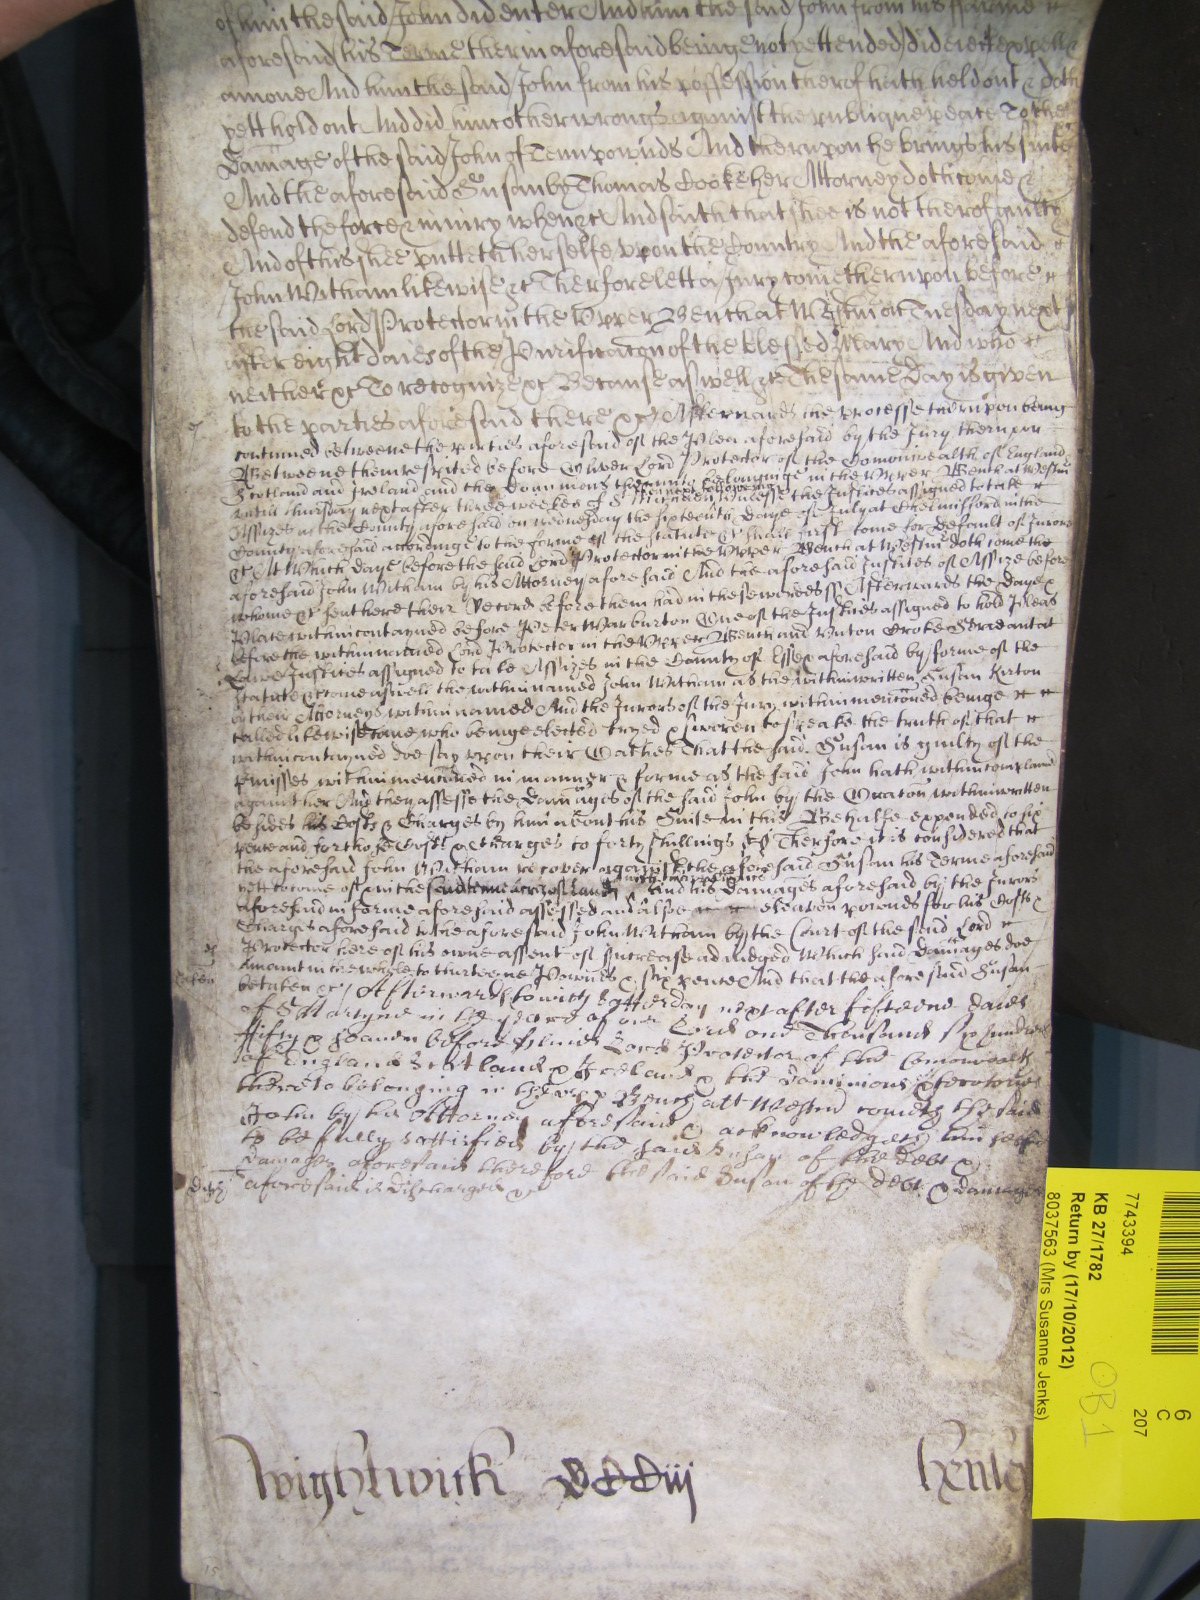 of him the said John did enter And him the said John from his ffarme &c
aforesaid his Terme therin aforesaid beinge not yett ended did eiect expell &
amove And him the said John from his possession therof hath held out & doth
yett hold out And did him other wrongs against the publique peace To the
Damage of the said John of Tenn pownds And therupon he brings his suite
And the aforesaid Susan by Thomas Cooke her Attorney doth come &
defend the force & iniury when &c And saith that shee is not therof guilty
And of this shee putteth herselfe upon the Country And the aforesaid
John Witham likewise &c Therfore lett a Jury come therupon before
the said Lord Protector in the Upper Bench at Westm̄ on Tuesday next
after eight daies of the Purificaton of the blessed Mary And who &c
neither &c To recognize &c Because aswell &c The same Day is given
to the parties aforesaid there &c Afterwards the processe therupon being
continued betweene the parties aforesaid of the Plea aforesaid by the Jury therupon
Betweene them respited before Oliver Lord Protector of the Comonwealth of England
Scotland and Ireland and the Dominions therunto belonginge in the Upper Bench at Westm̄
untill Thursday next after three weekes of S Michael then next followinge Unlesse the Justices assigned to take &c
Assizes in the County aforesaid on wednesday the sixteenth daye of July at Chelmisford in the
County aforesaid accordinge to the forme of the statute &c shall first come for default of Jurors
&c At Which daye before the said Lord Protector in the Upper Bench at Westm̄ doth come the
aforesaid John Witham by his Attorney aforesaid And the aforesaid Justices of Assize before
whome &c sent here their Record before them had in these wordes ss Afterwards the daye &
Place within contayned before Peter Warburton One of the Justices assigned to hold Pleas
before the within named Lord Protector in the Upper Bench and Unton Croke Serieant at
Lawe Justices assigned to take Assizes in the County of Essex aforesaid by forme of the
statute &c come aswell the within named John Witham as the within written Susan Kirton
by their Attorneys within named And the Jurors of the Jury within mencioned beinge &c &c
called likewise come who beinge elected tryed & sworen to speake the truth of that &c
within contayned doe say upon their Oathes That the said Susan is guilty of the
p̄misses within mencioned in manner & forme as the said John hath within complained
against her And they assesse the Damages of the said John by the Occaton within written
besides his Costs & Charges by him about his Suite in this Behalfe expended to six
pence and for those Costs & Charges to forty shillings &c Therfore it is considered that
the aforesaid John Witham recover against the aforesaid Susan his Terme aforesaid
yett to come of & in the said And his Damages aforesaid by the Jurors
aforesaid in forme aforesaid assessed and alsoe eleaven pownds for his Costs &
Charges aforesaid to the aforesaid John Witham by the Court of the said Lord &c
Protector here of his owne assent of Increase adiudged Which said Damages doe
Amount in the whole to thirteene Pownds & six pence And that the aforesaid Susan
be taken &c Afterwards to witt Satterday next after fifteene daies
of S Martyne in the yeare of our Lord one Thousand six hundred
ffifty & seaven before Oliver Lord Protector of the Comonwealth
of England Scotland & Ireland & the Dominions & territories
thereto belonging in the upp Bench att Westm̄ cometh the said
John by his Attorney aforesaid & acknowledgeth him selfe
to be fully sattisfied by the said Susan of the debt &
damages aforesaid therefore the said Susan of the debt & damages
aforesaid is discharged &c
Wightwick
Henley
6
C
207
7743394
KB 27/1782
Return by (17/10/2012)
8037563 (Mrs Susanne Jenks)
OB 1